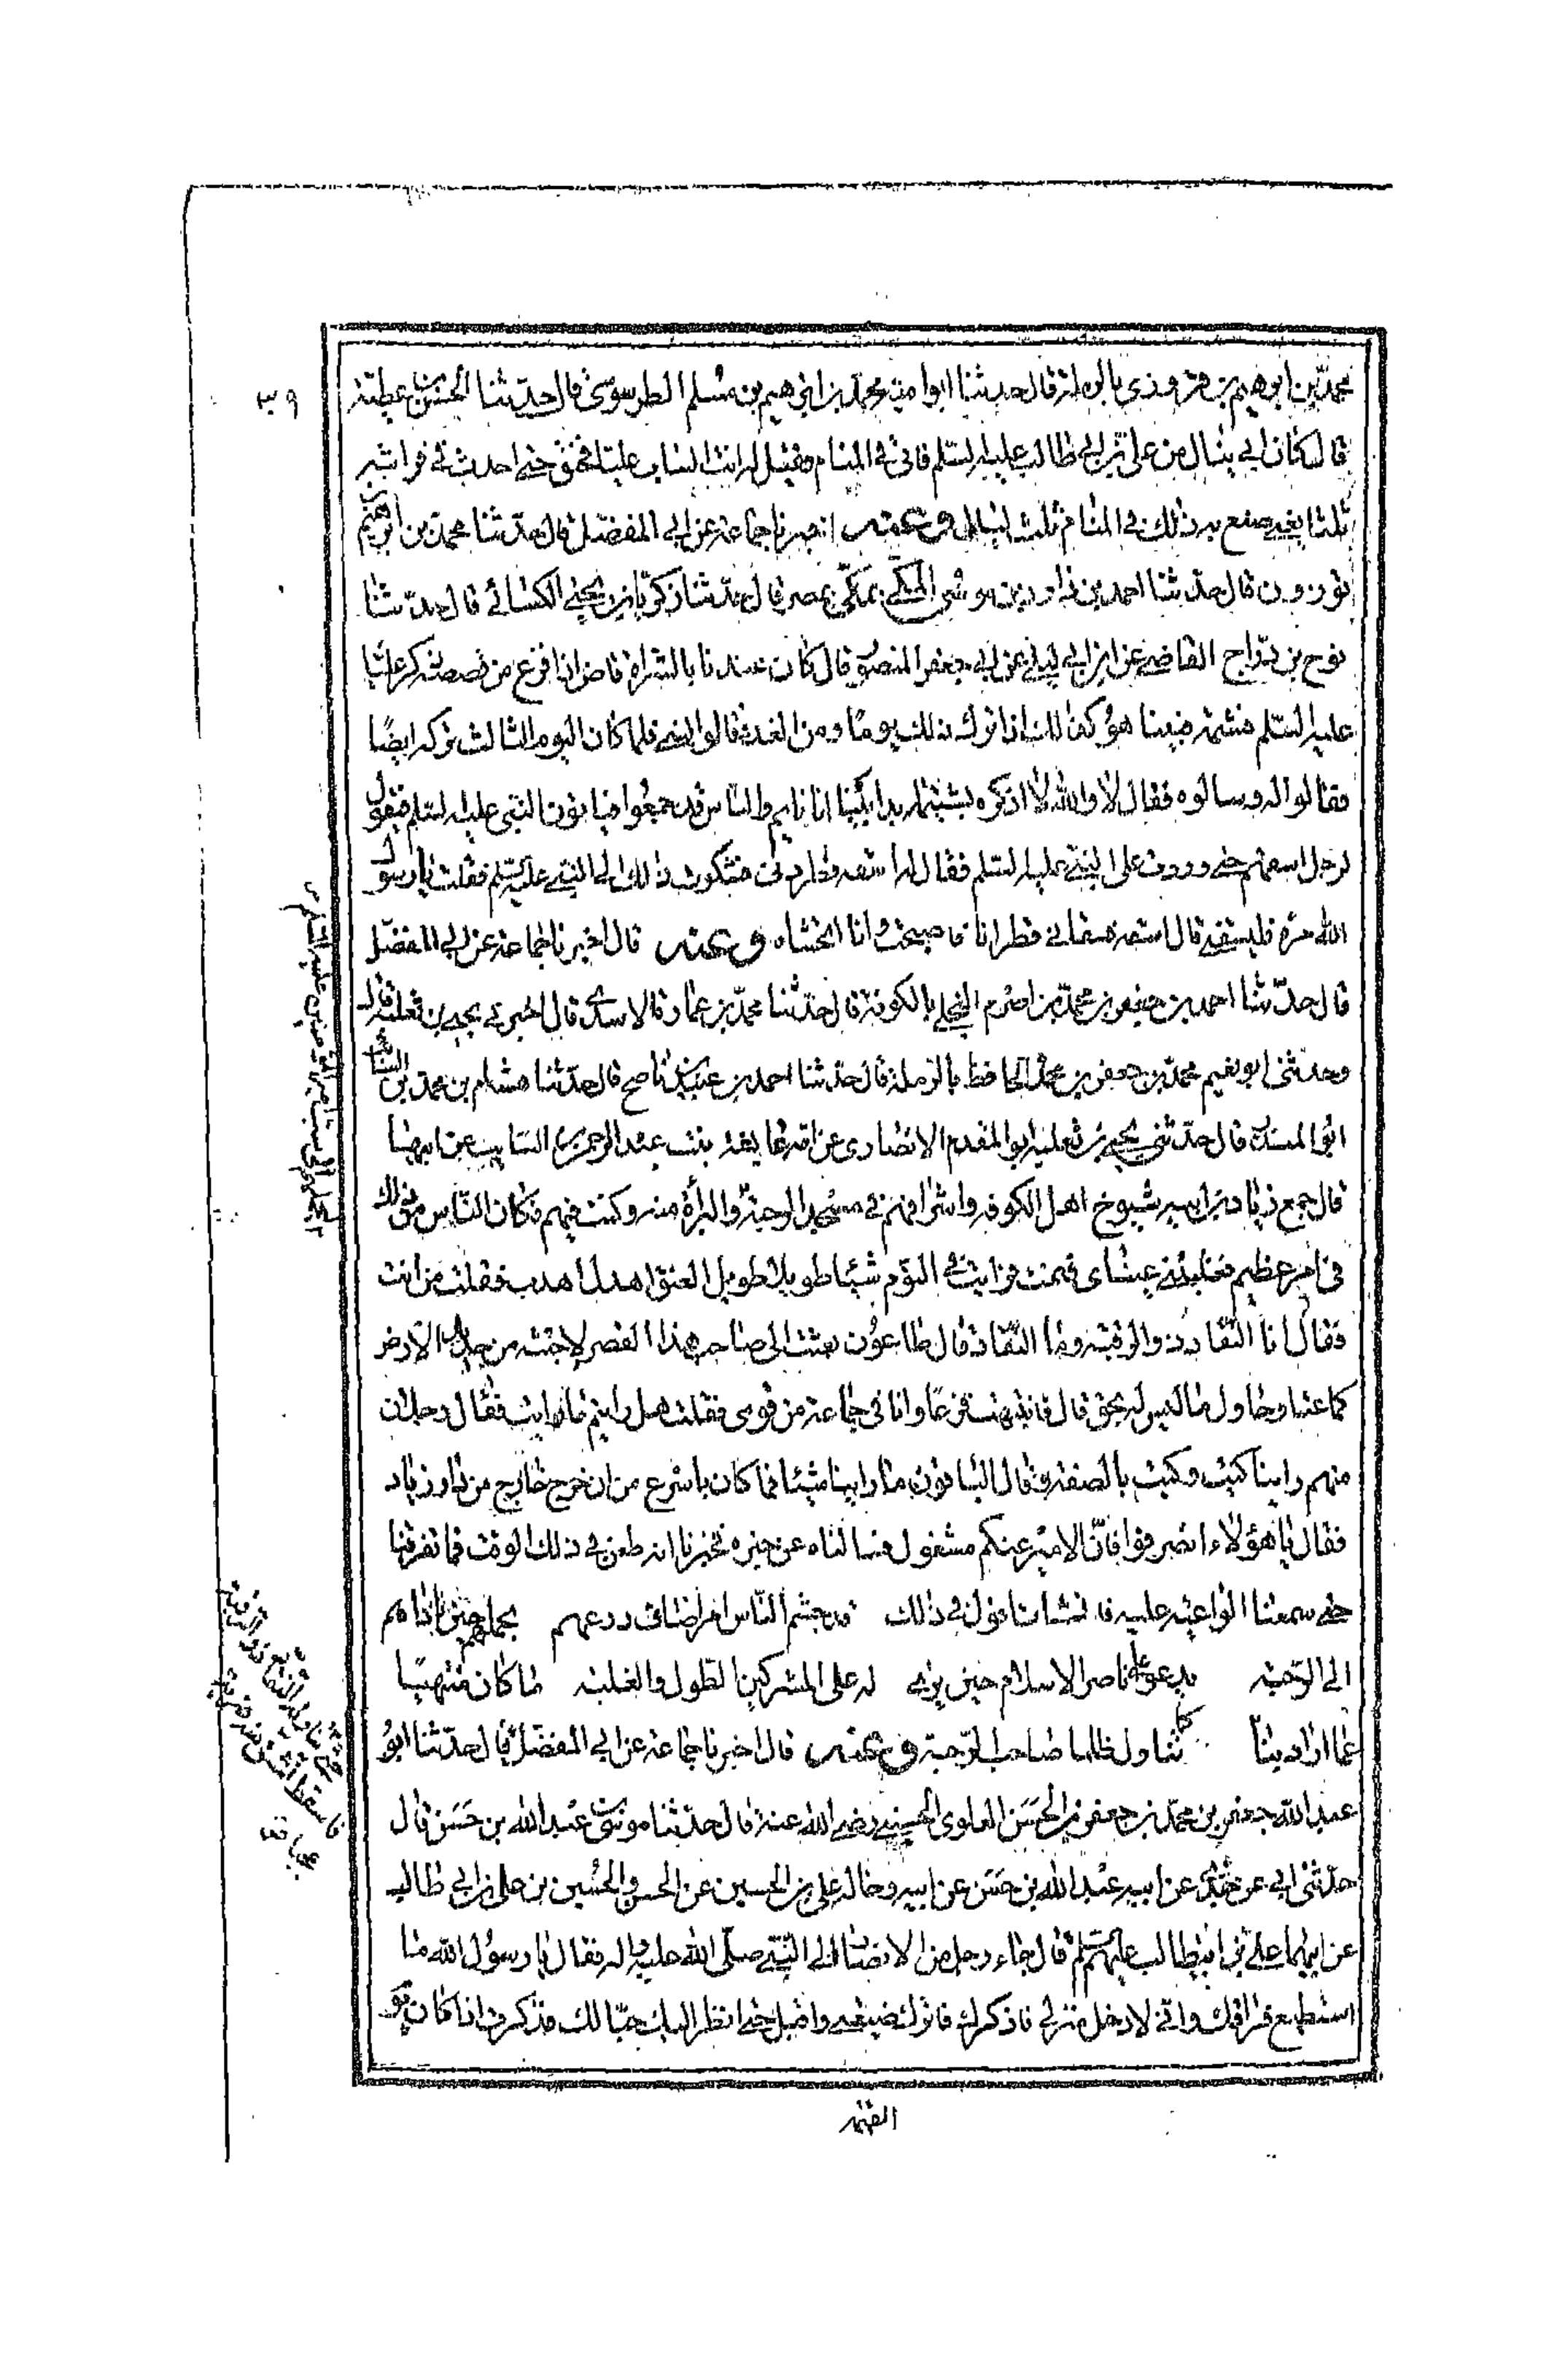 محمد بن ابرهيم بن قال حدثنا ابوامية محمد بن ابرهيم بن مسلم الطرسوسى قال حدثنا الحسن بن عطية
قال كان ابي ينال من على بن ابي طالب عليه السلم فاتى في المنام وقيل له انت الساب عليا فخنق حتى احدث في فراشه
ثلثا يعنى صنع به ذلك في المنام ثلث ليال وعنه اخبرنا جماعة عن ابي المفضل قال حدثنا محمد بن ابرهيم
قال حدثنا احمد بن داود بن موسى المكى بمصر قال حدثنا زكريا بن يحيى الكسائي قال حدثنا
نوح بن دراج القاضي عن ابن ابي ليلى عن ابي جعفر المنصور قال كان عندنا بالشراة قاص اذا فرغ من قصصه ذكر عليا
عليه السلم فشتمه فبينا هو كذلك اذا ترك ذلك يوما ومن الغد فقالوا نسى فلما كان اليوم الثالث تركه ايضا
فقالوا له وسالوه فقال لا والله لا اذكره بشتيمة ابدا بينا انا نايم والناس قد جمعوا فياتون النبى عليه السلم فيقول
لرجل اسقهم حتى وردت على النبى عليه السلم فقال له اسقه فطردنى فشكوت ذلك الى النبى عليه السلم فقلت يا رسول
الله مره فليسقنى قال اسقه فسقاني قطرانا فاصبحت وانا اتجشاه وعنه قال اخبرنا جماعة عن ابي المفضل
قال حدثنا احمد بن جعفر بن محمد بن اصرم البجلى بالكوفة قال حدثنا محمد بن عمار الاسدى قال اخبرني يحيى بن ثعلبة قال
وحدثنى ابو نعيم محمد بن جعفر بن محمد الحافظ بالرملة قال حدثنا احمد بن عبيد بن ناصح قال حدثنا هشام بن محمد بن السائب
ابو المنذر قال حدثنى يحيى بن ثعلبة ابو المقدم الانصارى عن امه عايشة بنت عبد الرحمن بن السايب عن ابيها
قال جمع زياد بن ابيه شيوخ اهل الكوفة واشرافهم في مسجد الرحبة والبرأة منه وكنت فيهم فكان الناس من ذلك
في امر عظيم فغلبتنى عيناى فنمت فرايت في النوم شيئا طويلا طويل العنق اهدل اهدب فقلت من انت
فقال انا النقاد ذو الرقبة وما النقاد قال طاعون بعثت الى صاحب هذا القصر لاجتثه من جديد الارض
كما عتا وحاول ما ليس له بحق قال فانتبهت فزعا وانا في جماعة من قومى فقلت هل رايتم ما رايت فقال رجلان
منهم راينا كيت وكيت بالصفة وقال الباقون ما راينا شيئا فما كان باسرع من ان خرج خارج من دار زياد
فقال يا هؤلاء انصرفوا فان الامير عنكم مشغول فسالناه عن خبره فخبرنا انه طعن في ذلك الوقت فما تفرقنا
حتى سمعنا الواعية عليه فانشات اقول في ذلك قد جشم الناس امرا ضاق ذرعهم بحملهم حين اداهم
الى الرحبة يدعو على ناصر الاسلام حين يرى له على المشركين الطول والغلبة ما كان منتهيا
عما اراد بنا كما تناول ظلما صاحب الرحبة وعنه قال اخبرنا جماعة عن ابي المفضل قال حدثنا ابو
عبد الله جعفر بن محمد بن جعفر بن الحسن العلوى الحسينى رضى الله عنه قال حدثنا موسى بن عبد الله بن حسن قال
حدثنى ابي عن جدى عن ابيه عبد الله بن حسن عن ابيه وخاله على بن الحسين عن الحسن والحسين بن على بن ابي طالب
عن ابيهما على بن ابيطالب عليهم السلم قال جاء رجل من الانصار الى النبى صلى الله عليه واله فقال يا رسول الله ما
استطيع فراقك وانى لادخل منزلى فاذكرك فاترك ضيعتى واقبل حتى انظر اليك حبا لك فذكرت اذا كان يوم
القيمة
٣٩
لسب امير المؤمنين عليه السلم
حتى تناوله النقاد ذو الرقبة
فاسقط الشق منه ضربة